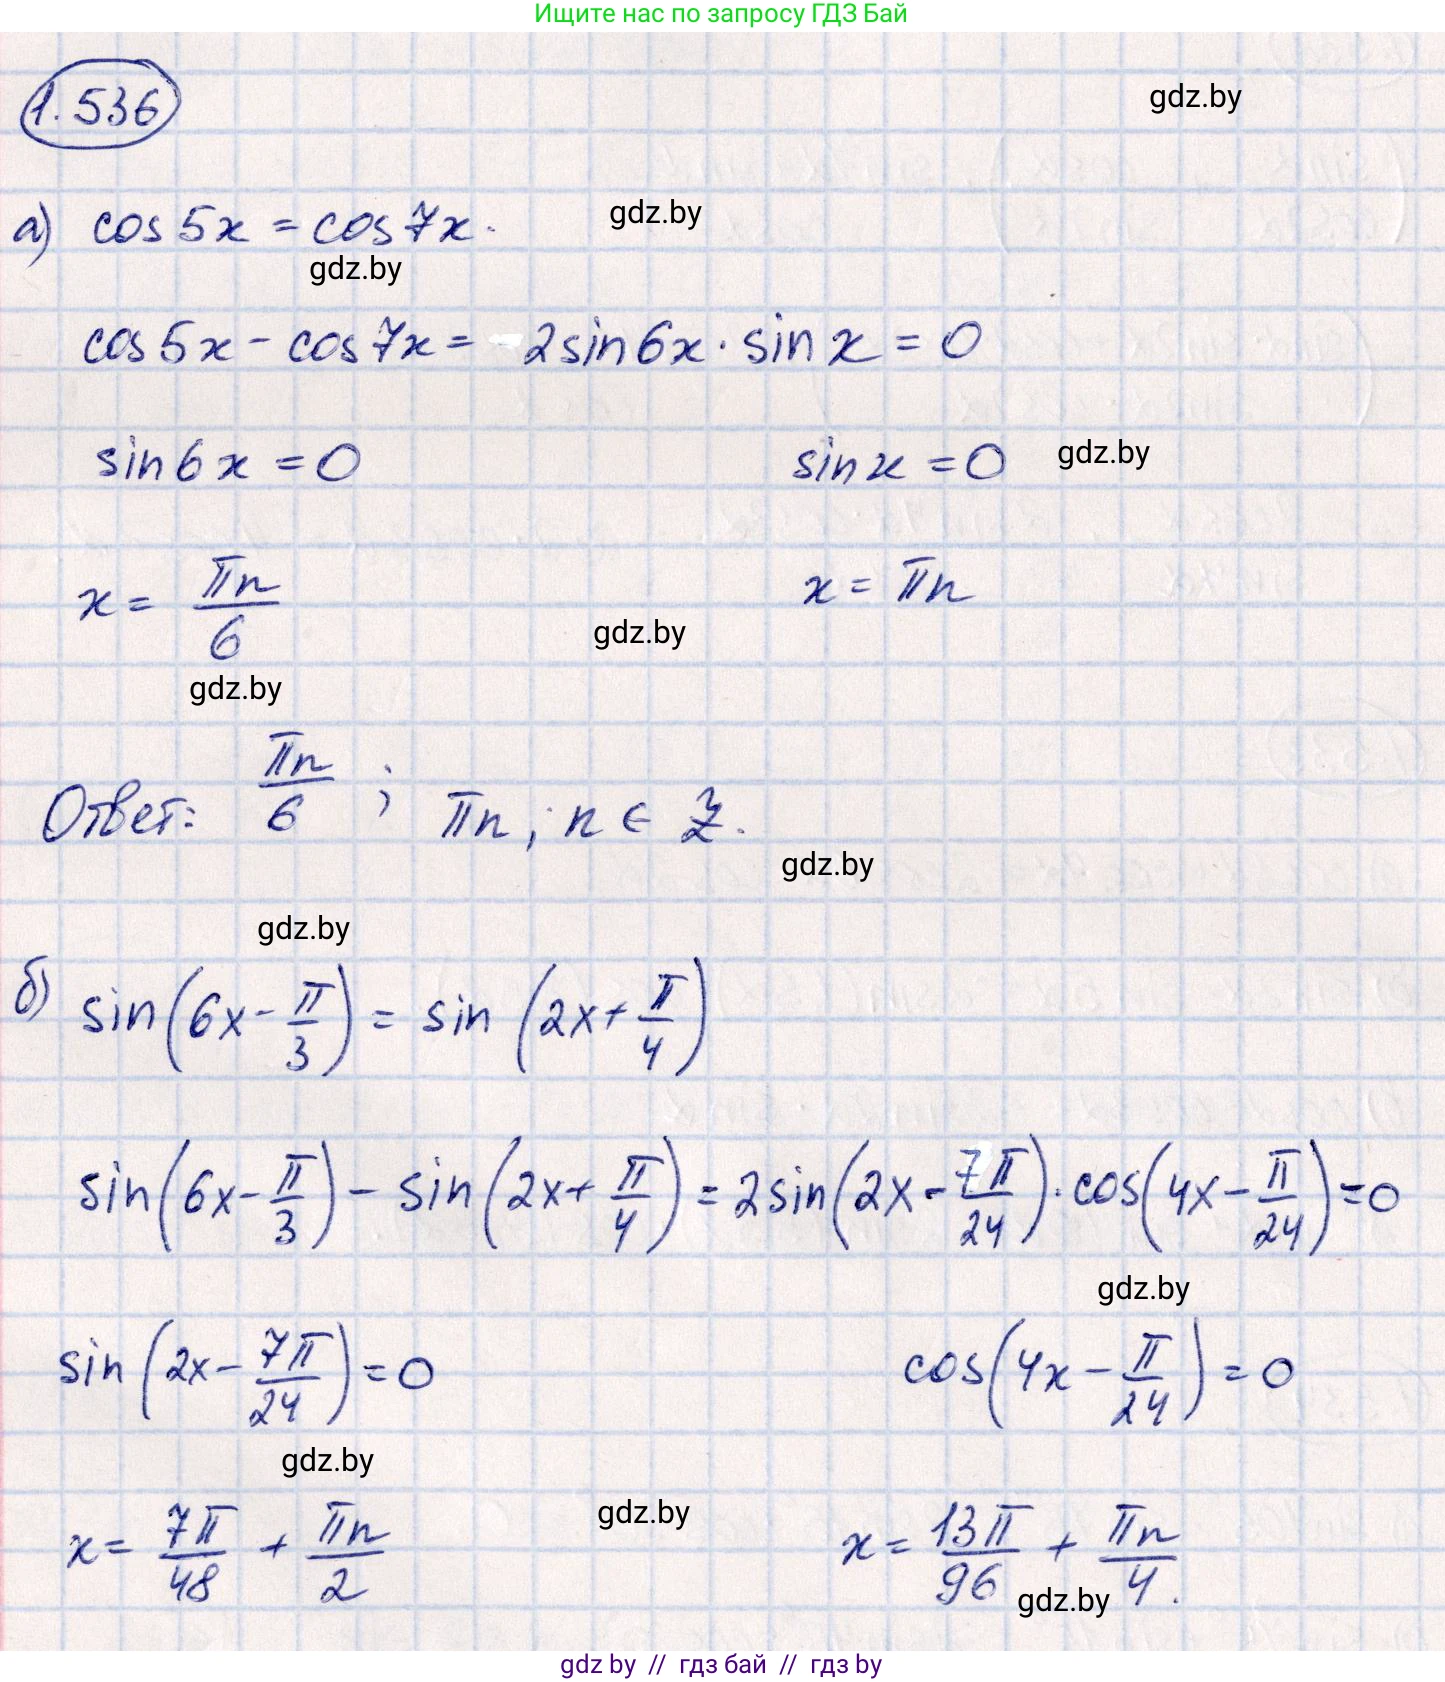 Ищите нас по запросу ГДЗ Бай
1.536
gdz.by
а) cos 5x = cos 7x.
gdz.by
gdz.by
cos 5x - cos 7x = - 2 sin 6x · sin x = 0
sin 6x = 0
sin x = 0
gdz.by
x = πn/6
x = πn
gdz.by
gdz.by
Ответ: πn/6 ; πn ; n ∈ Z.
gdz.by
gdz.by
б) sin(6x - π/3) = sin (2x + π/4)
sin(6x - π/3) - sin(2x + π/4) = 2 sin(2x - 7π/24) · cos(4x - π/24) = 0
gdz.by
sin (2x - 7π/24) = 0
cos(4x - π/24) = 0
gdz.by
gdz.by
x = 7π/48 + πn/2
x = 13π/96 + πn/4.
gdz.by
gdz by // гдз бай // гдз by